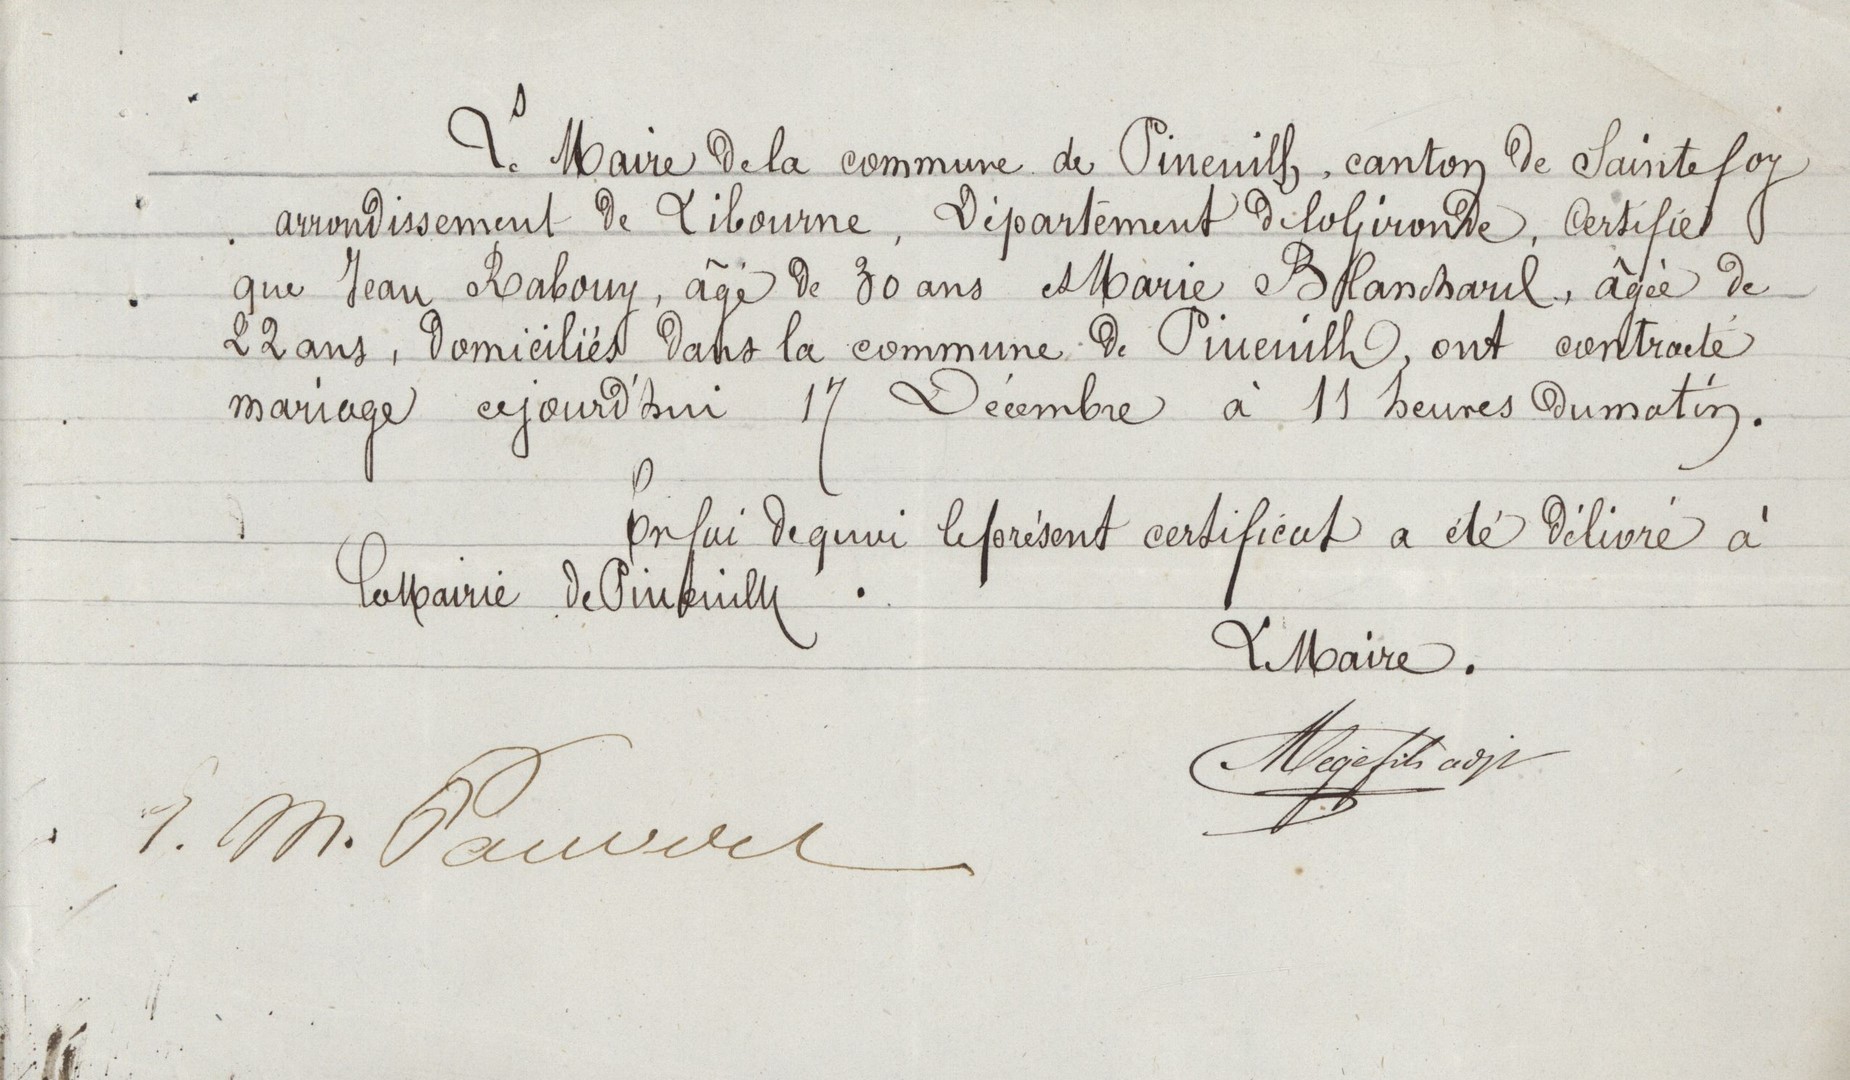 Le Maire de la commune de Pineuilh, canton de Sainte foy
arrondissement de Libourne, Département de la Gironde, Certifie
que Jean Rabouy, âgé de 30 ans et Marie Blanchard, âgée de
22 ans, domiciliés dans la commune de Pineuilh, ont contracté
mariage cejourd'hui 17 Décembre à 11 heures du matin.
En foi de quoi le présent certificat a été délivré à
la Mairie de Pineuilh.
Le Maire.
Mége fils adjt
M.